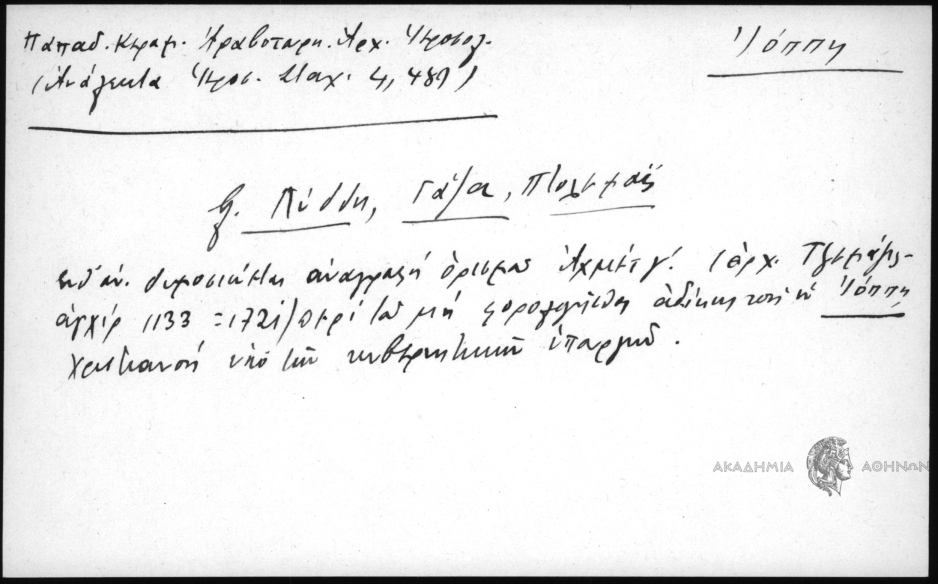 Παπαδ. Κεραμ. Ἀραβοτουρκ. Ἀρχ. Ἱεροσολ.
Ἰόππη
(Ἀνάλεκτα Ἱεροσ. Σταχ. 4, 487)
Λύδδη, Γάζα, Πτολεμαΐς
ἀναγραφή ὁρισμοῦ Ἀχμέτ γ΄. (ἀρχ. Τζεμαζι-
ἀχίρ 1133 = 1721) περί τοῦ μή φορολογεῖσθαι ἀδίκως τούς ἐν Ἰόππῃ
Χριστιανούς ὑπό τῶν κυβερνητικῶν ὑπαλλήλων.
ΑΚΑΔΗΜΙΑ ΑΘΗΝΩΝ